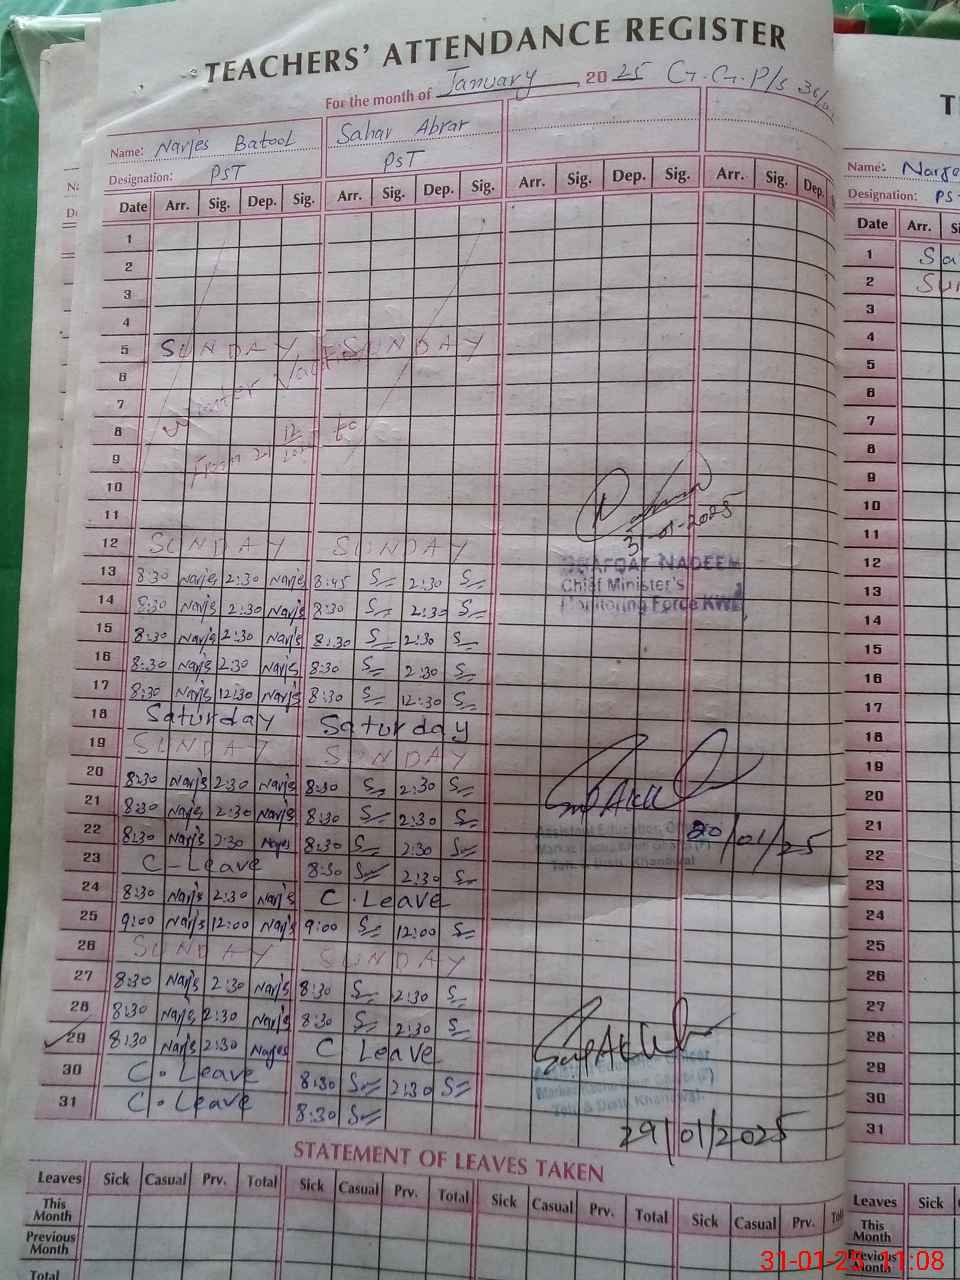 TEACHERS' ATTENDANCE REGISTER
For the month of January, 20 25 G.G.P/s
Name: Narjes Batool Sahar Abrar
Designation: PST PST
Date Arr. Sig. Dep. Sig. Arr. Sig. Dep. Sig. Arr. Sig. Dep. Sig. Arr. Sig. Dep.
1
2
3
4
5 SUNDAY SUNDAY
6
7 Winter
8 to
9 From
10
11
12 SUNDAY SUNDAY
13 8:30 Narjs 2:30 Narjs 8:45 S 2:30 S
14 8:30 Narjs 2:30 Narjs 8:30 S 2:30 S
15 8:30 Narjs 2:30 Narjs 8:30 S 2:30 S
16 8:30 Narjs 2:30 Narjs 8:30 S 2:30 S
17 8:30 Narjs 12:30 Narjs 8:30 S 12:30 S
18 Saturday Saturday
19 SUNDAY SUNDAY
20 8:30 Narjs 2:30 Narjs 8:30 S 2:30 S
21 8:30 Narjs 2:30 Narjs 8:30 S 2:30 S
22 8:30 Narjs 2:30 Narjes 8:30 S 2:30 S
23 C-Leave 8:30 S 2:30 S
24 8:30 Narjs 2:30 Narjs C.Leave
25 9:00 Narjs 12:00 Narjs 9:00 S 12:00 S
26 SUNDAY SUNDAY
27 8:30 Narjs 2:30 Narjs 8:30 S 2:30 S
28 8:30 Narjs 2:30 Narjs 8:30 S 2:30 S
29 8:30 Narjs 2:30 Narjes C Leave
30 C.Leave 8:30 S 2:30 S
31 C.Leave 8:30 S
31-01-2025
SHAFQAT NADEEM
Chief Minister's
Monitoring Force KWL
20/01/25
29/01/2025
STATEMENT OF LEAVES TAKEN
Leaves Sick Casual Prv. Total Sick Casual Prv. Total Sick Casual Prv. Total Sick Casual Prv.
This Month
Previous Month
Total
Name:
Designation: PS
Date Arr.
1
2
3
4
5
6
7
8
9
10
11
12
13
14
15
16
17
18
19
20
21
22
23
24
25
26
27
28
29
30
31
Leaves Sick
This Month
Previous Month
31-01-25 11:08